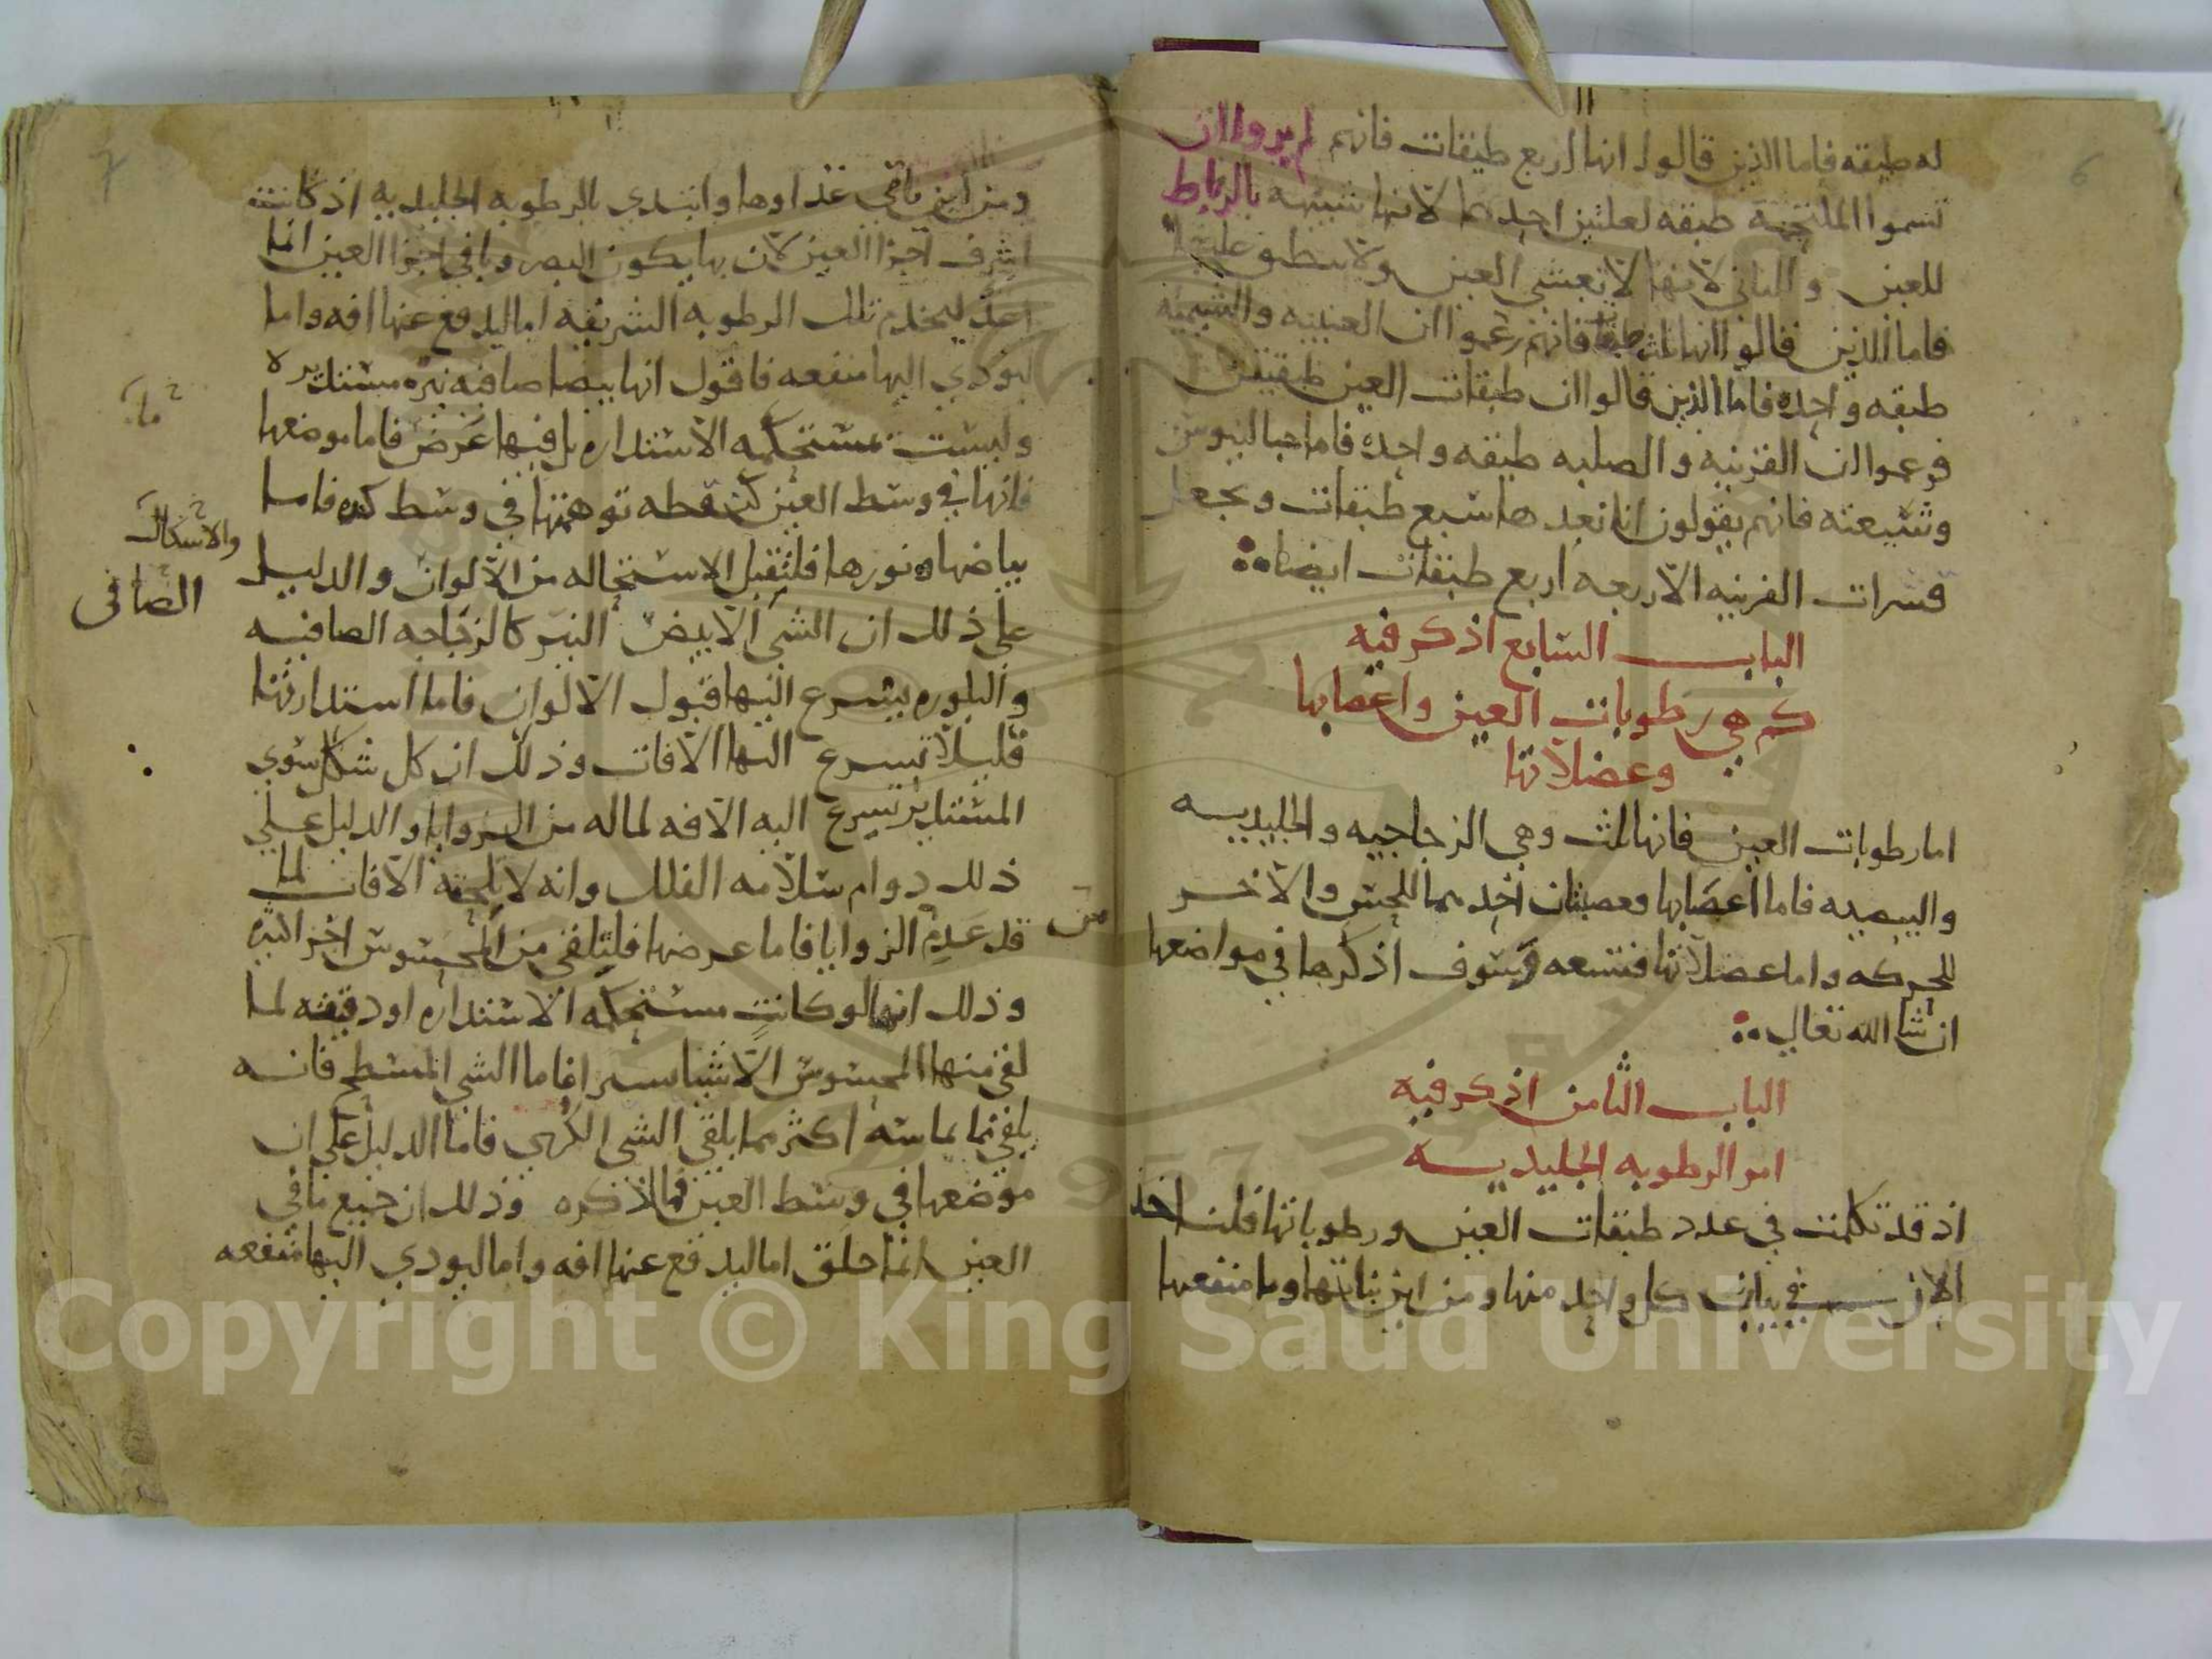 6
له طبقه فاما الذين قالوا انها اربع طبقات فانهم لم يروا ان
تسموا الملتحمه طبقه لعلتين احدهما لانها شبيهه بالرباط
للعين والثاني لانها لا تغشي العين ولا ينطبق عليها
فاما الذين قالوا انها ثلث طبقات فانهم زعموا ان العنبيه والشيميه
طبقه واحده فاما الذين قالوا ان طبقات العين طبقتين
فزعموا ان القرنيه والصلبه طبقه واحده فاما جالينوس
وشيعته فانهم يقولون انا نعدها سبع طبقات ونجعل
قشرات القرنيه الاربعه اربع طبقات ايضا
الباب السابع اذكر فيه
كم هي رطوبات العين واعصابها
وعضلاتها
اما رطوبات العين فانها ثلث وهي الزجاجيه والجليديه
والبيضيه فاما اعصابها فعصبتان احدهما للحس والآخر
للحركه واما عضلاتها فتسعه وسوف اذكرها في مواضعها
ان شا الله تعالي
الباب الثامن اذكر فيه
امر الرطوبه الجليديه
اذ قد تكلمت في عدد طبقات العين ورطوباتها فلناخذ
الان في بيان كل واحد منها ومن اين نباتها وما منفعتها
7
ومن اين ياتي غذاوها وابتدي بالرطوبه الجليديه اذ كانت
اشرف اجزا العين لان بها يكون البصر وباقي اجزا العين انما
اعد ليخدم تلك الرطوبه الشريفه اما ليدفع عنها افه واما
ليودي اليها منفعه فاقول انها بيضا صافيه نيره مستديره
وليست مستحكمه الاستداره بل فيها عرض فاما موضعها
فانها في وسط العين كنقطه توهمتها في وسط كره فاما
بياضها ونورها فلتقبل الاستحاله من الالوان والدليل
والاشكال
الصافى
على ذلك ان الشي الابيض النير كالزجاجه الصافيه
والبلوره يسرع اليها قبول الالوان فاما استدارتها
فليلا تسرع اليها الآفات وذلك ان كل شكل سوي
المستدير تسرع اليه الآفه لما له من الزوايا والدليل علي
ذلك دوام سلامه الفلك وانه لا يلحقه الآفات لما
قد عدم الزوايا فاما عرضها فلتلقي من المحسوس اجزا كثيره
وذلك انها لو كانت مستحكمه الاستداره او دقيقه لما
لقي منها المحسوس الا شيا يسيرا فاما الشي المسطح فانه
يلقي مما يماسه اكثر مما يلقي الشي الكري فاما الدليل على ان
موضعها في وسط العين فما اذكره وذلك ان جميع ما في
العين انما خلق اما ليدفع عنها افه واما ليودي اليها منفعه
Copyright © King Saud University
1957